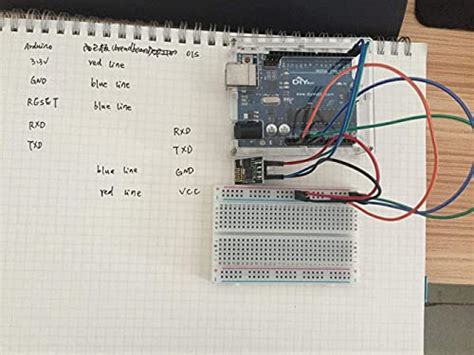 Arduino (breadboard) 01S
3.3V red line
GND blue line
RESET blue line
RXD RXD
TXD TXD
blue line GND
red line VCC
DIY